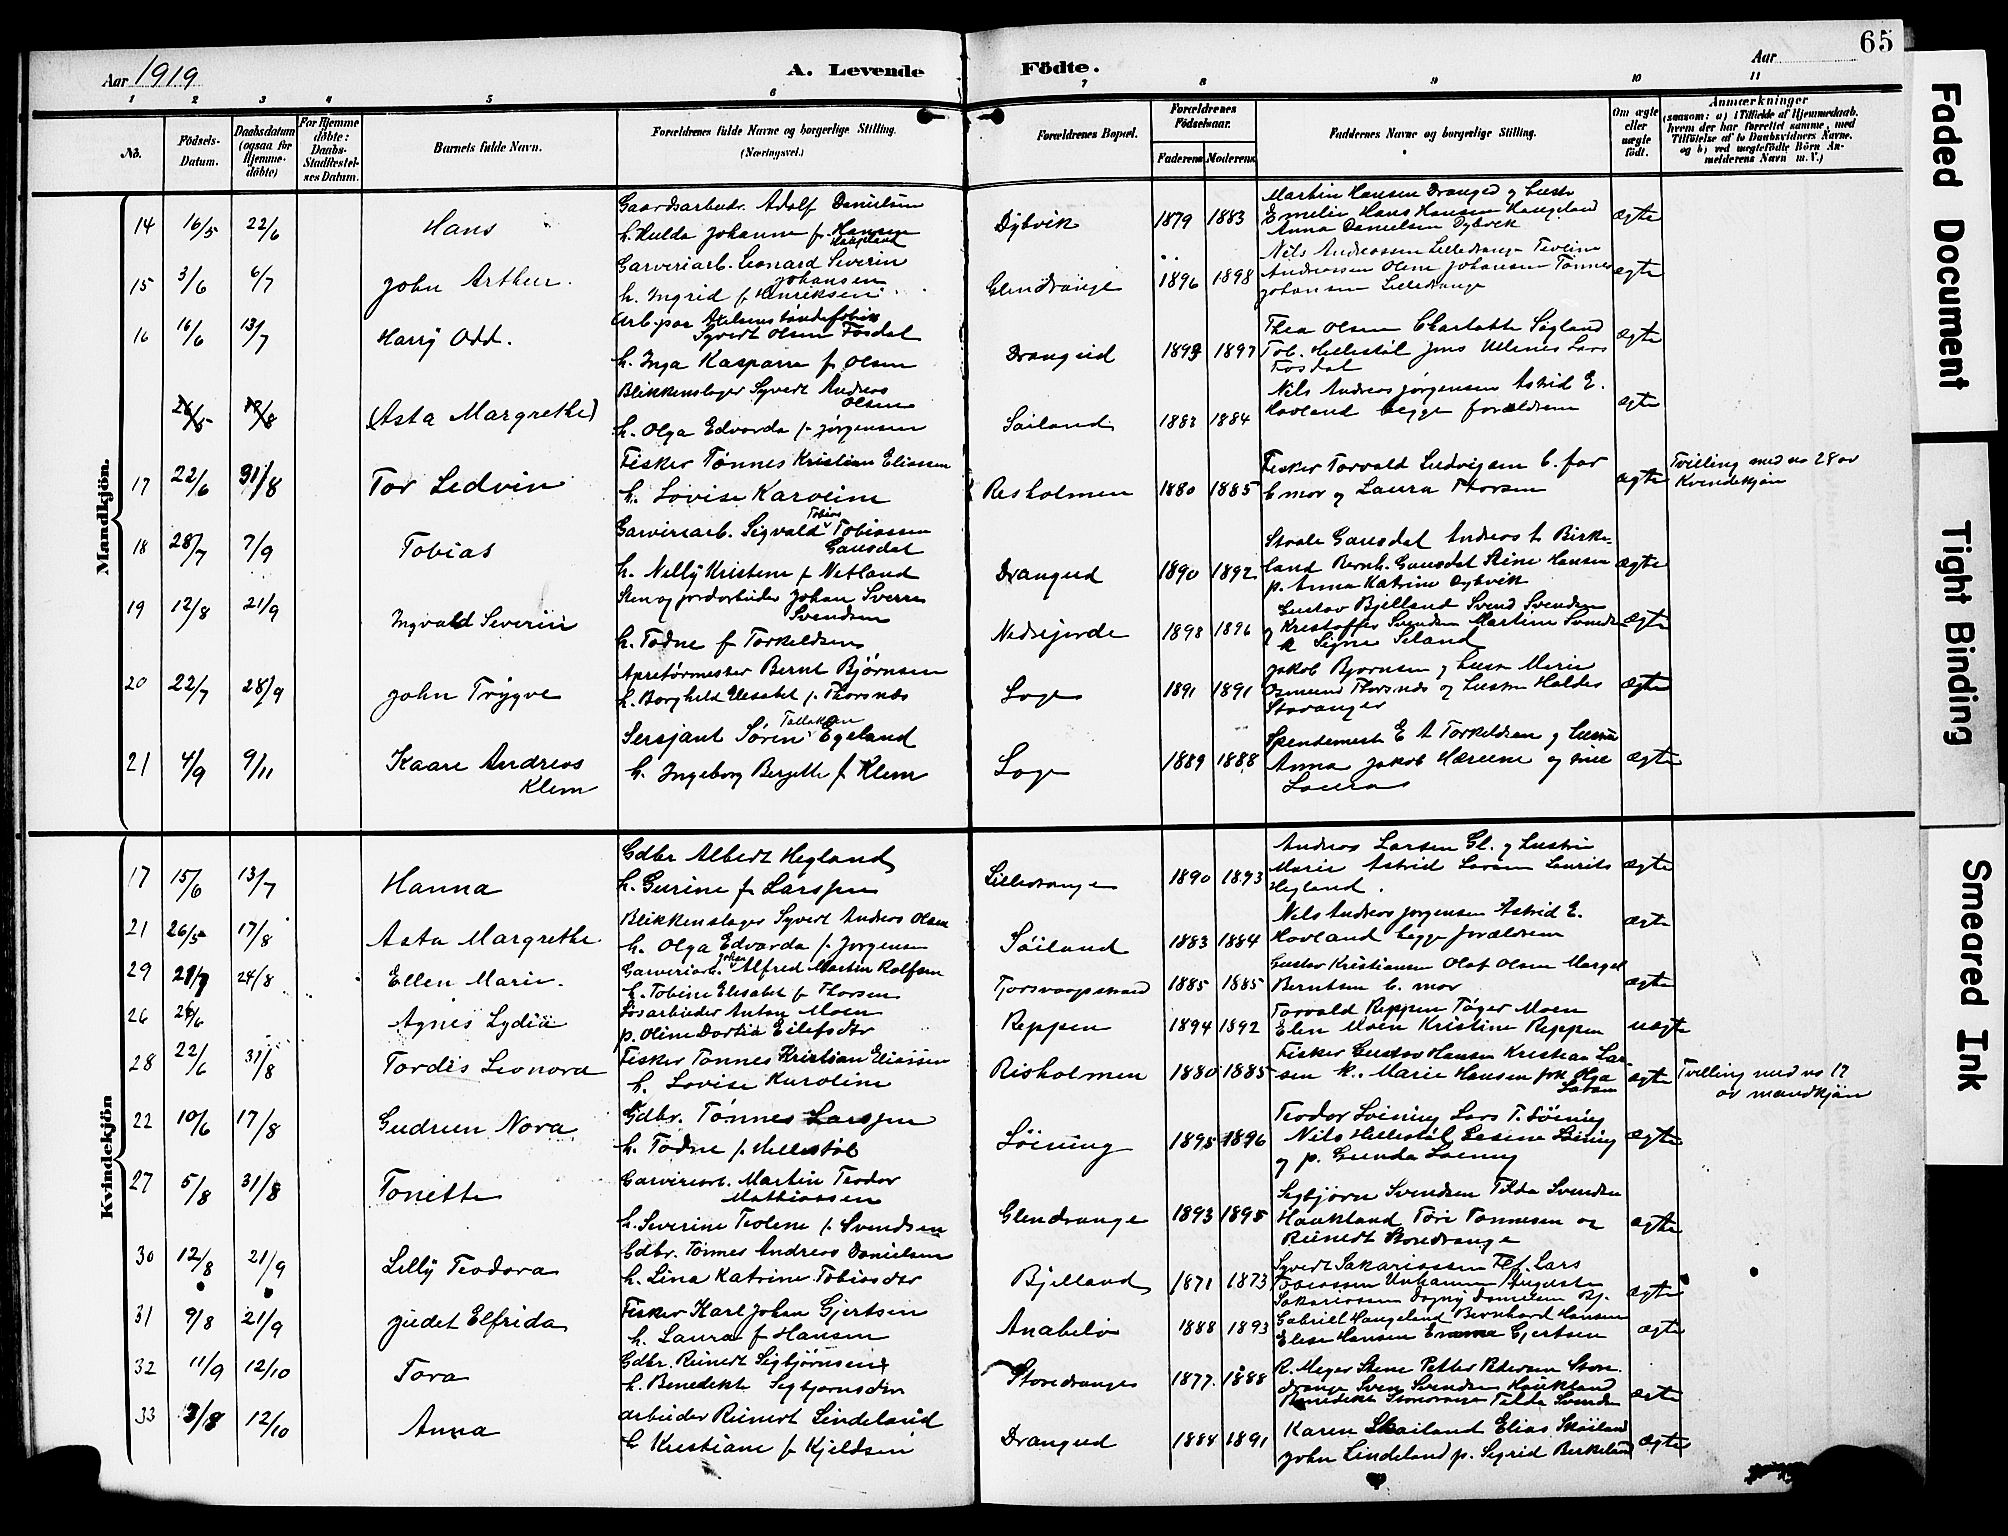 65
Aar 1919
A. Levende Födte.
Aar
1 2 3 4 5 6 7 8 9 10 11
No.
Födsels-Datum.
Daabsdatum (ogsaa for Hjemmedöbte)
For Hjemmedöbte: Daabs-Stadfæstelses Datum.
Barnets fulde Navn.
Forældrenes fulde Navne og borgerlige Stilling.
(Næringsvei.)
Forældrenes Bopæl.
Forældrenes Födselsaar.
Faderens Moderens
Faddernes Navne og borgerlige Stilling.
Om ægte eller uægte födt.
Anmærkninger
(saasom: a) i Tilfælde af Hjemmedaab, hvem der har forrettet samme, med Tilföielse af to Daabsvidners Navne, og b) ved uægtefödte Börn Anmelderens Navn m. V.)
Mandkjön.
14 16/5 22/6 Hans
Gaardsarbeidr. Adolf Danielsen
h. Hulda Johanne f. Hansen Haugeland
Dybvik 1879 1883
Martin Hansen Dranged og hustr
Emelie Hans Hansen Haugeland
Anna Danielsen Dybvik
ægte
15 3/6 6/7 John Arthur.
Garveriarb. Leonard Severin Johansen
h. Ingrid f. Henriksen
Glendrange 1896 1898
Nils Andreassen Lilledrange Teoline
Andreassen Oline Johansen Tønnes
Johansen Lilledrange
ægte
16 16/6 13/7 Harry Odd.
Syvert Olsen Fosdal
h. Inga Kasparra f. Olsen
Drangeid 1897
Thea Olsen Charlotte Sigland
Tob. Hellestøl Jens Ullenes Lars
Fosdal
ægte
26/5 17/8 (Asta Margrethe)
Blikkenslager Syvert Andreas Olsen
h. Olga Edvarda f. Jørgensen
Søiland 1883 1884
Nils Andreas Jørgensen Astrid E.
Hovland begge forældrene
ægte
17 22/6 31/8 Tor Ledvin
Fisker Tønnes Kristian Eliassen
h. Lovise Karoline
Risholmen 1880 1885
Fisker Torvald Ludvigsen b. far
b. mor og Laura Thorsen
ægte
Tvilling med no 28 av
Kvindekjøn
18 28/7 7/9 Tobias
Garveriarb. Sigvald Tobias Tobiassen
Gausdal
h. Nelly Kristene f. Netland
Drangeid 1890 1892
Staale Gausdal Andreas t. Birke-
land Bernh. Gausdal Stine Hansen
p. Anna Katrine Dybvik
ægte
19 12/8 21/9 Ingvald Severin
Sten og jordarbeider Johan Sverre
Svendsen
h. Todne f. Torkeldsen
Nedrejorde 1898 1896
Gustav Bjelland Svend Svendsen
og Kristoffer Svendsen Martine Svendsen
k. Signe Seland
ægte
20 22/7 28/9 John Trygve
Apretørmester Bernt Bjørnsen
h. Borghild Elisabet f. Thorsnes
Loge 1891 1891
Jakob Bjørnsen og hustr Marie
Osmund Thorsnes og hustru Haldis
Stavanger
ægte
21 4/9 9/11 Kaare Andreas
Klem
Sersjant Søren Tallaksen Egeland
h. Ingeborg Bergette f. Klem
Loge 1889 1888
E A Torkeldsen og hustru
Anna Jakob Hereene og frue
Laura
ægte
Kvindekjön
17 15/6 13/7 Hanna
Gdbr Albert Hegland
h. Gurine f. Larssen
Lilledrange 1890 1893
Andreas Larsen Gl. og hustru
Marie Astrid Larsen Laurits
Hegland.
ægte
21 26/5 17/8 Asta Margrethe
Blikkenslager Syvert Andreas Olsen
h. Olga Edvarda f. Jørgensen
Søiland 1883 1884
Nils Andreas Jørgensen Astrid E.
Hovland begge forældrene
ægte
29 24/8 Ellen Marie.
Garveriarb. Johan Alfred Martin Rolfsen
h. Tobine Elisabet f. Thorsen
Tjorsvaagstrand 1885 1885
Gustav Kristiansen Olaf Olsen Margit
Berntsen b. mor
ægte
26 Agnes Lydia
Løsarbeider Anton Moen
p. Oline Dortia Eilefsdtr
Reppen 1894 1892
Torvald Reppen Tøger Moen
Elen Moen Kristine Reppen
uægte
28 22/6 31/8 Tordis Leonora
Fisker Tønnes Kristian Eliassen
h. Lovise Karoline
Risholmen 1880 1885
Fisker Gustav Hansen Kristian Lar-
sen k. Marie Hansen frk Olga
Larsen
ægte
Tvilling med no 17
av mandkjøn
22 10/6 17/8 Gudrun Nora
Gdbr. Tønnes Larssen
h. Todne f. Hellestøl
Løining 1895 1896
Teodor Løining Lars T. Løining
Nils Hellestøl Gesine Løining
og p. Gunda Løining
ægte
27 5/8 31/8 Tonette
Garveriarb. Martin Teodor
Mathiassen
h. Severine Teoline f. Svendsen
Glendrange 1893 1895
Sigbjørn Svendsen Tilda Svendsen
Haukland Tori Tønnesen og
Reinert Storedrange
ægte
30 12/8 21/9 Lilly Teodora
Gdbr. Tønnes Andreas Danielsen
h. Lina Katrine Tobiasdtr
Bjelland 1871 1873
Syvert Sakariassen Fed. Lars
Tobiassen Johanne Auguste
Sakariassen Dagny Danielsen Bj.
ægte
31 9/8 21/9 Judet Elfrida
Fisker Karl Johan Gjertsen
h. Laura f. Hansen
Anabeløs 1888 1893
Gabriel Haugeland Bernhard Hansen
Elise Hansen Emma Gjertsen
ægte
32 11/9 12/10 Tora
Gdbr. Reinert Sigbjørnsen
h. Benedikte Sigbjørnsdtr
Storedrange 1877. 1888
R. Meyer Stene Petter Pedersen Store-
drange Sven Svendsen Haukland
Benedikte Storedrange Tilda Svendsen
ægte
33 3/8 12/10 Anna
Arbeider Reinert Lindeland
h Kristiane f. Kjeldsen
Drangeid 1884 1891
Karen Skailand Elias Skøiland
John Lindeland p. Sigrid Birkeland
ægte
Faded Document
Tight Binding
Smeared Ink